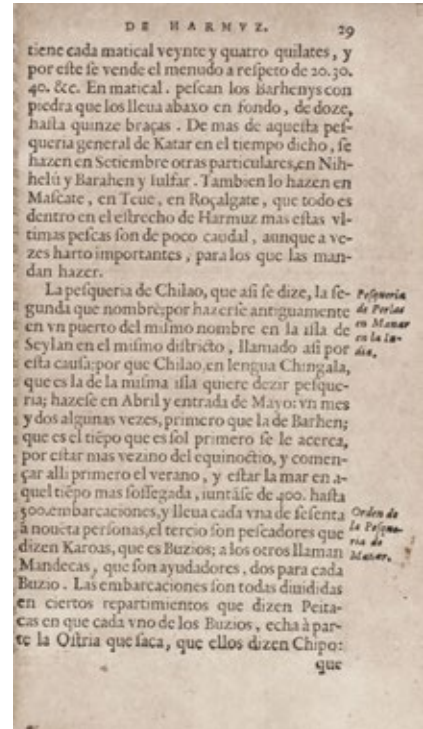 DE HARMVZ. 29
tiene cada matical veynte y quatro quilates, y
por eſte ſe vende el menudo a reſpeto de 20.30.
40. &c. En matical. peſcan los Barhenys con
piedra que los lleua abaxo en fondo, de doze,
haſta quinze braças. De mas de aqueſta peſ-
queria general de Katar en el tiempo dicho, ſe
hazen en Setiembre otras particulares,en Nih-
helú y Barahen y Iulfar. Tambien lo hazen en
Maſcate, en Teue, en Roçalgate, que todo es
dentro en el eſtrecho de Harmuz mas eſtas vl-
timas peſcas ſon de poco caudal, aunque a ve-
zes harto importantes, para los que las man-
dan hazer.
La peſqueria de Chilao, que aſi ſe dize, la ſe-
gunda que nombrè;por hazerſe antiguamente
en vn puerto del miſmo nombre en la iſla de
Seylan en el miſmo diſtricto, llamado aſi por
eſta cauſa:por que Chilao,en lengua Chingala,
que es la de la miſma iſla quiere dezir peſque-
ria; hazeſe en Abril y entrada de Mayo: vn mes
y dos algunas vezes, primero que la de Barhen;
que es el tiẽpo que es ſol primero ſe le acerca,
por eſtar mas vezino del equinoctio, y comen-
çar alli primero el verano, y eſtar la mar en a-
quel tiẽpo mas ſoſſegada, iuntáſe de 400. haſta
500.embarcaciones,y lleua cada vna de ſeſenta
à nouẽta perſonas,el tercio ſon peſcadores que
dizen Karoas, que es Buzios; a los otros llaman
Mandecas, que ſon ayudadores, dos para cada
Buzio. Las embarcaciones ſon todas diuididas
en ciertos repartimientos que dizen Peita-
cas en que cada vno de los Buzios, echa à par-
te la Oſtria que ſaca, que ellos dizen Chipo:
que
Peſqueria
de Perlas
en Manar
en la In-
dia.
Orden de
la Peſque-
ria de
Manar.